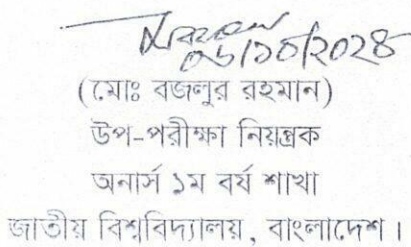 ০৬/১০/২০২৪
(মোঃ বজলুর রহমান)
উপ-পরীক্ষা নিয়ন্ত্রক
অনার্স ১ম বর্ষ শাখা
জাতীয় বিশ্ববিদ্যালয়, বাংলাদেশ।